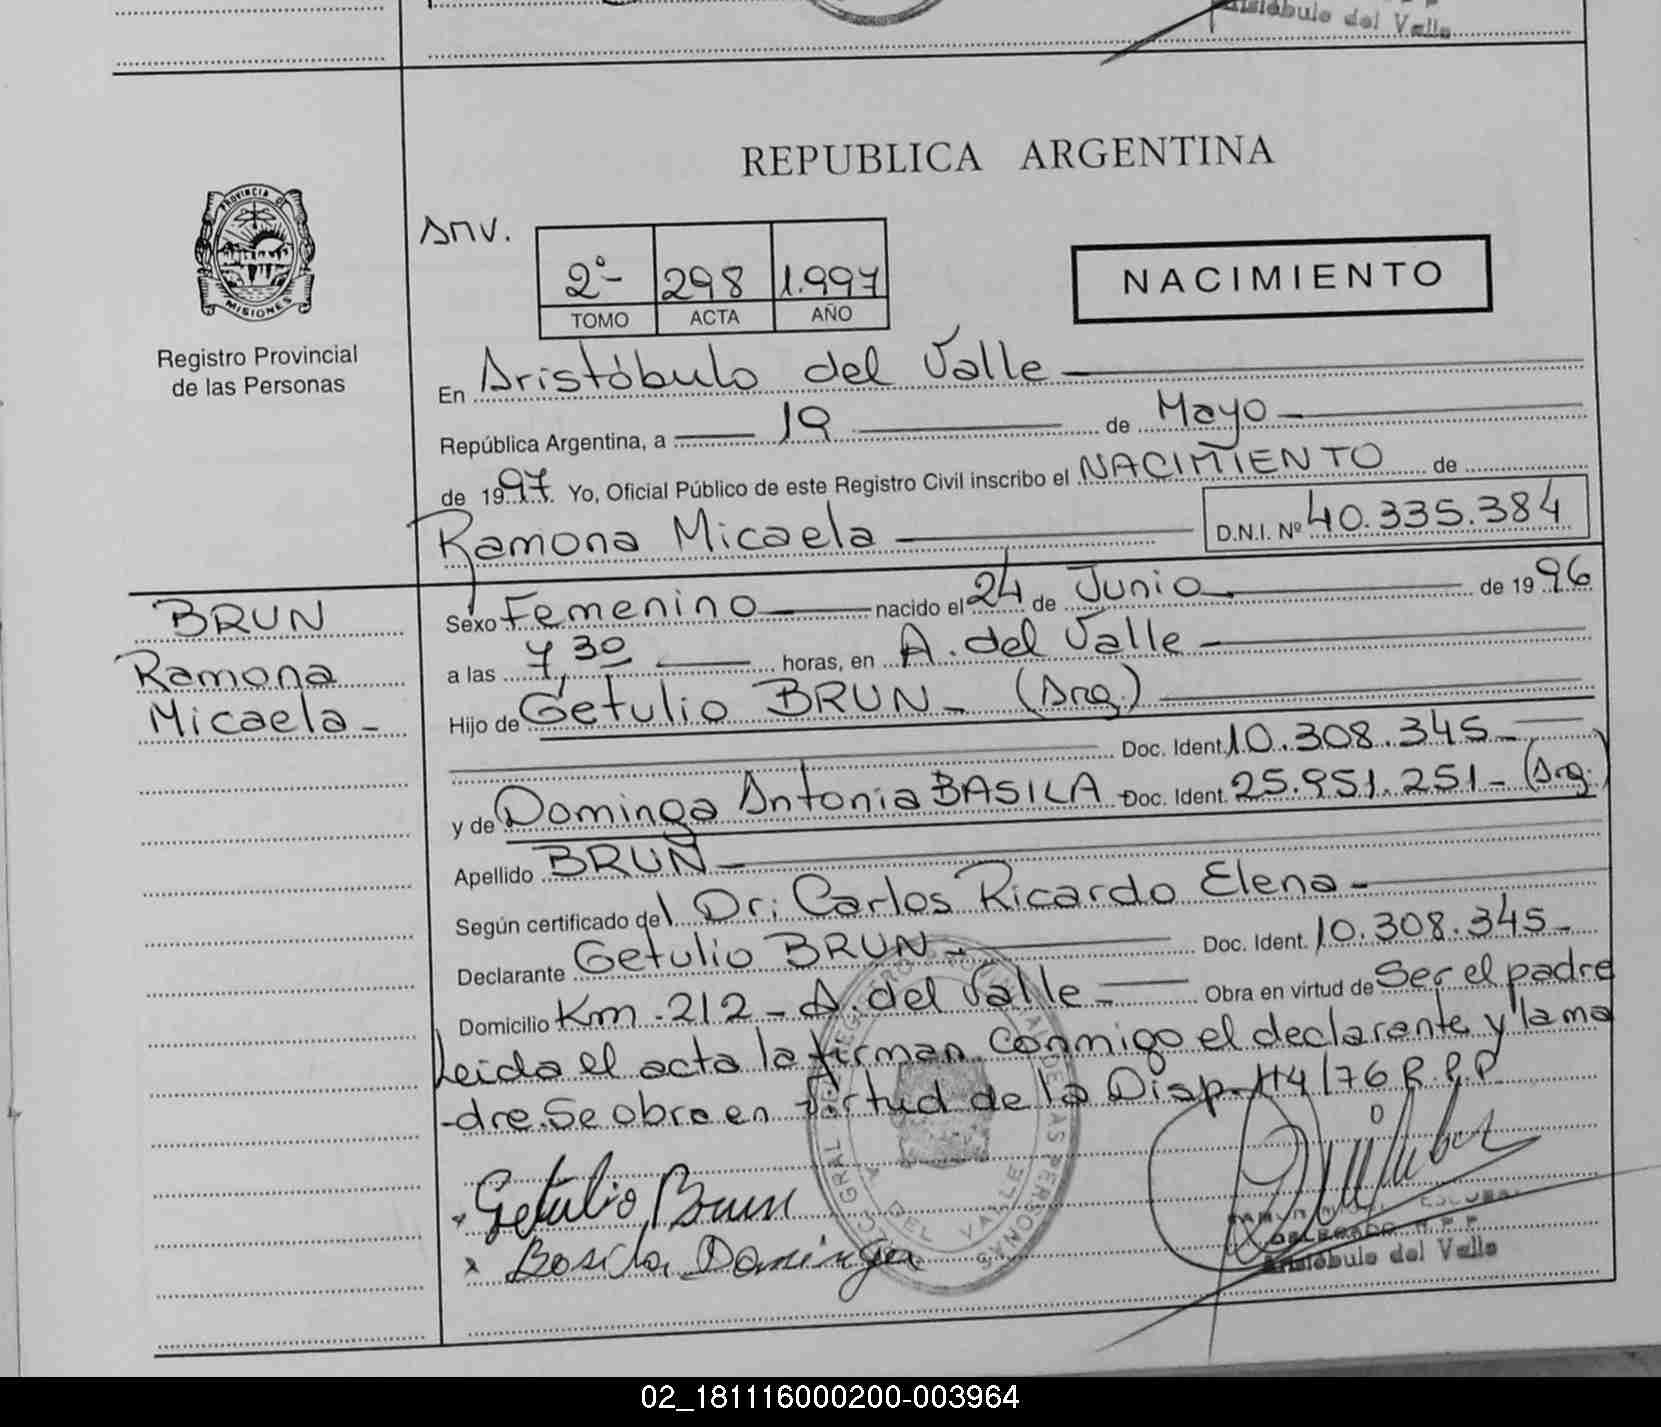 Aristóbulo del Valle
REPUBLICA ARGENTINA
PROVINCIA DE
MISIONES
Registro Provincial
de las Personas
Anv.
2º- 298 1.997
TOMO ACTA AÑO
NACIMIENTO
En Aristóbulo del Valle
República Argentina, a 19 de Mayo
de 1997. Yo, Oficial Público de este Registro Civil inscribo el NACIMIENTO de
Ramona Micaela D.N.I. Nº 40.335.384
BRUN
Ramona
Micaela -
Sexo Femenino nacido el 24 de Junio de 1996
a las 7,30 horas, en A. del Valle
Hijo de Getulio BRUN - (Arg.)
Doc. Ident. 10.308.345 -
y de Dominga Antonia BASILA Doc. Ident. 25.951.251 - (Arg.)
Apellido BRUN -
Según certificado del Dr: Carlos Ricardo Elena -
Declarante Getulio BRUN - Doc. Ident. 10.308.345 -
Domicilio Km. 212 - A. del Valle - Obra en virtud de Ser el padre
Leida el acta la firman conmigo el declarante y la ma
-dre. Se obra en virtud de la Disp. 114/76 R.P.P.
Getulio Brun
Basila Dominga
DELEGADO R.P.P.
Aristóbulo del Valle
02_181116000200-003964